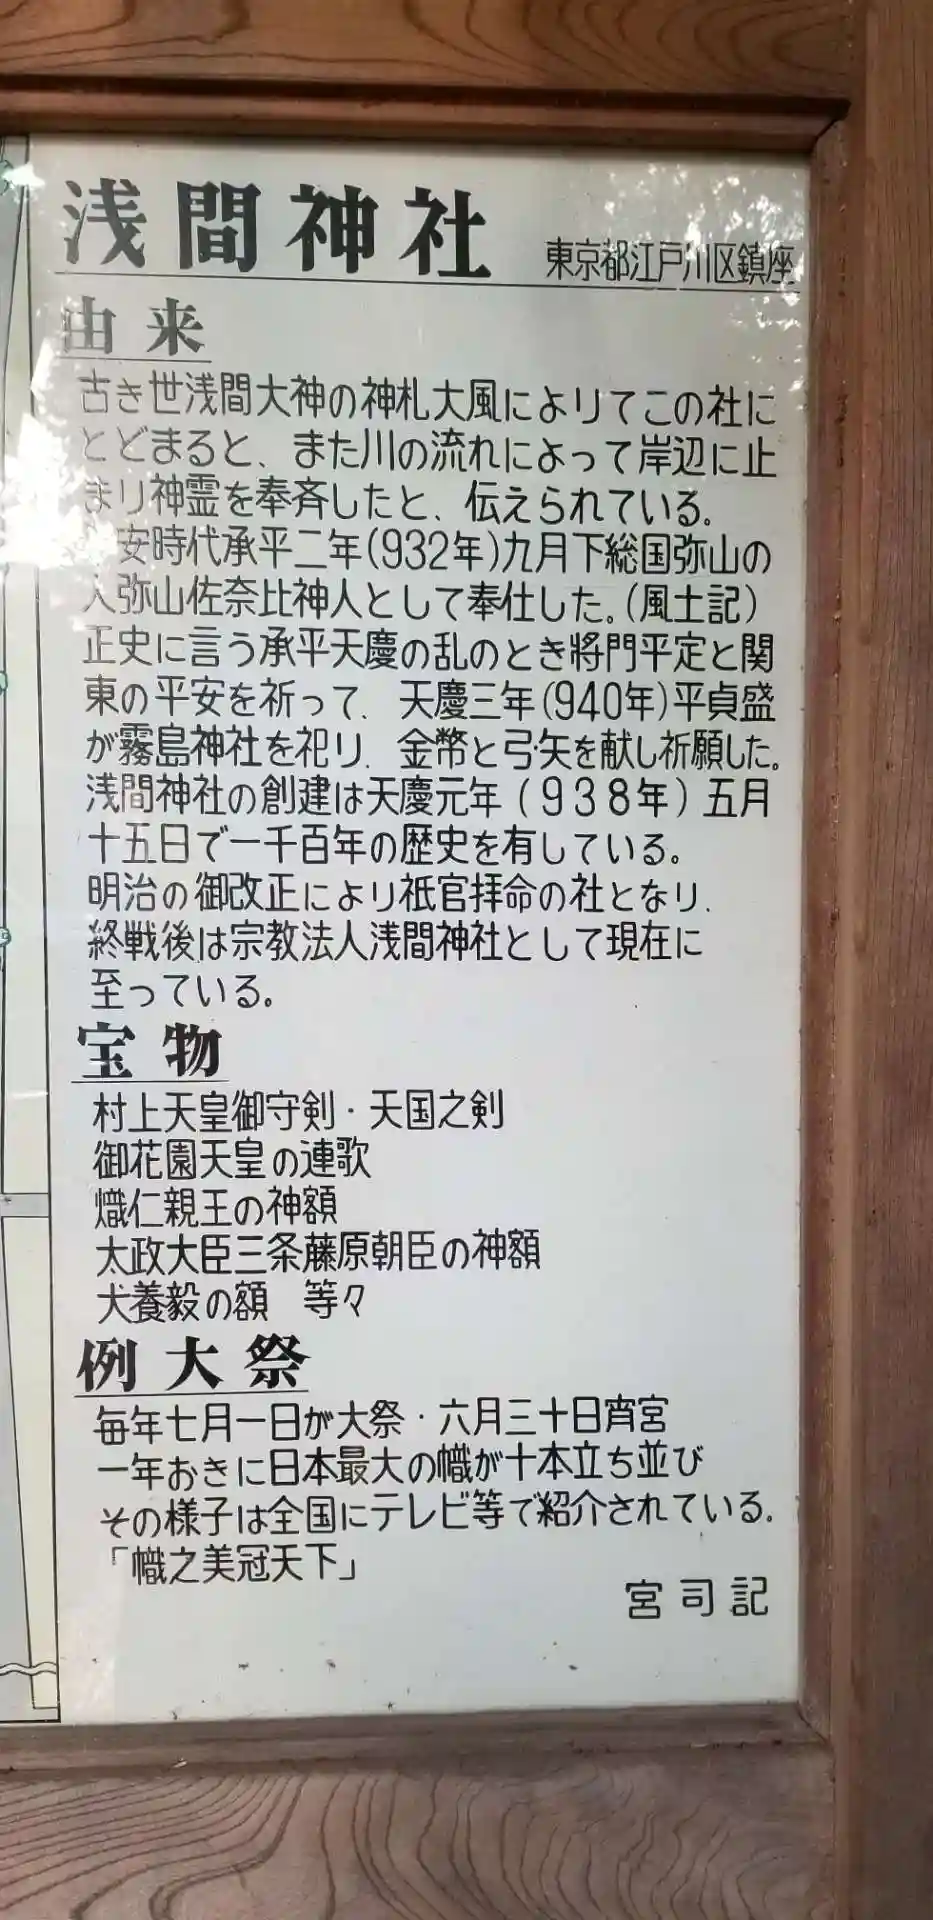 浅間神社 東京都江戸川区鎮座
由来
古き世浅間大神の神札大風によりてこの社に
とどまると、また川の流れによって岸辺に止
まり神霊を奉斉したと、伝えられている。
安時代承平二年(932年)九月下総国弥山の
人弥山佐奈比神人として奉仕した。(風土記)
正史に言う承平天慶の乱のとき將門平定と関
東の平安を祈って、天慶三年(940年)平貞盛
が霧島神社を祀り、金幣と弓・矢を献し祈願した。
浅間神社の創建は天慶元年(938年)五月
十五日で一千百年の歴史を有している。
明治の御改正により祇官拝命の社となり、
終戦後は宗教法人浅間神社として現在に
至っている。
宝物
村上天皇御守剣・天国之剣
御花園天皇の連歌
熾仁親王の神額
太政大臣三条藤原朝臣の神額
犬養毅の額 等々
例大祭
毎年七月一日が大祭・六月三十日宵宮
一年おきに日本最大の幟が十本立ち並び
その様子は全国にテレビ等で紹介されている。
「幟之美冠天下」
宮司記